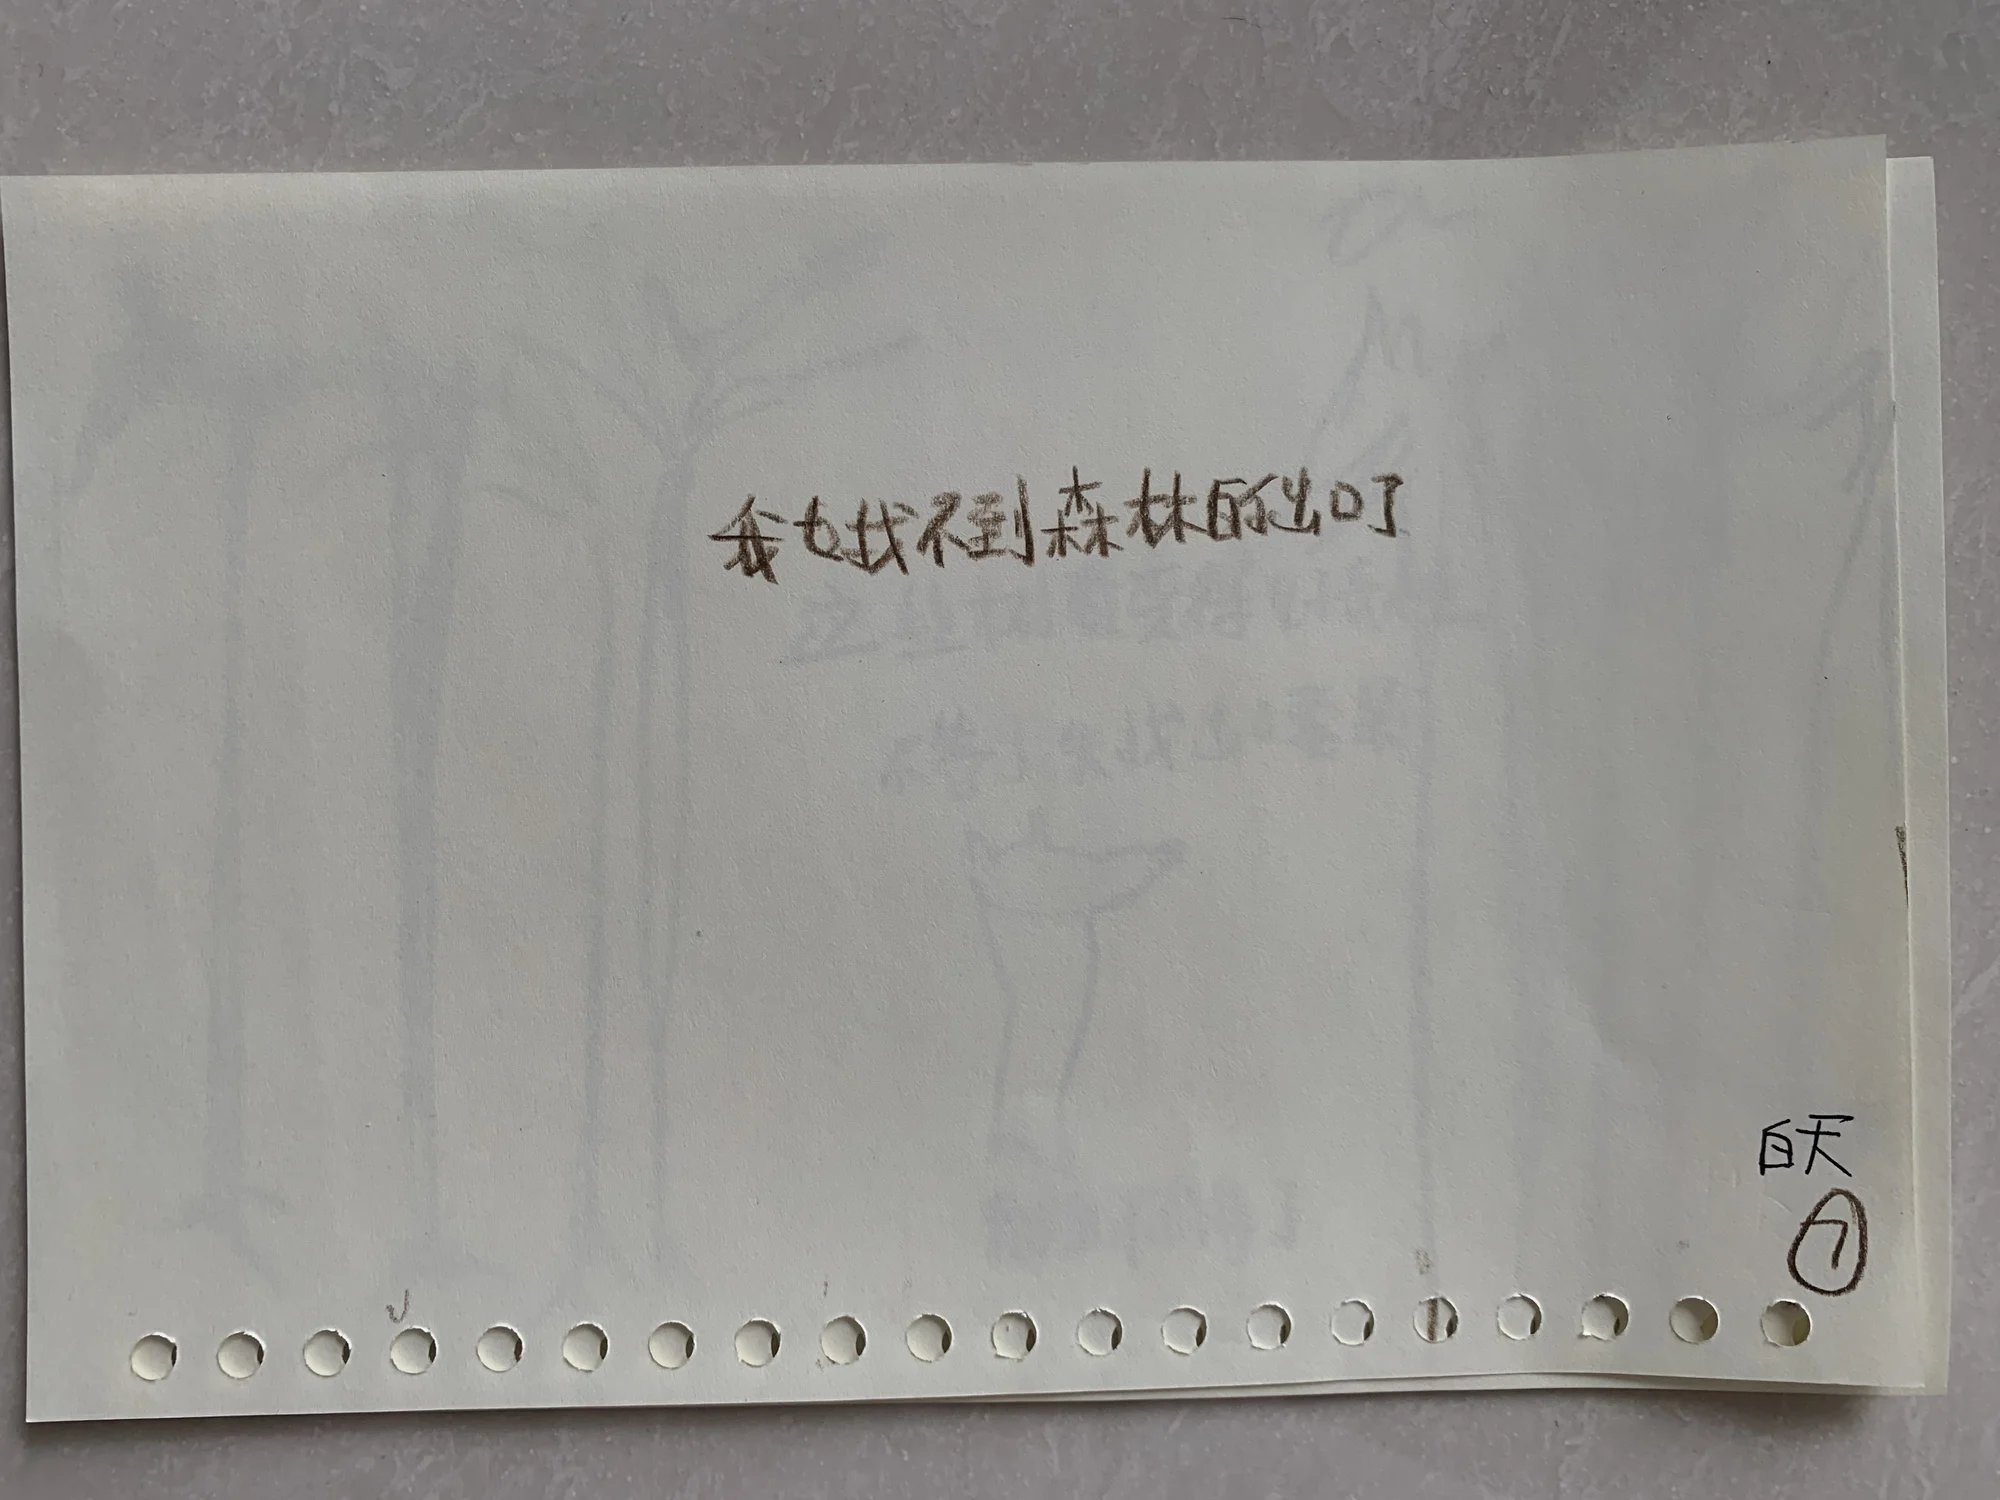 我也找不到森林的出口了
白天
7